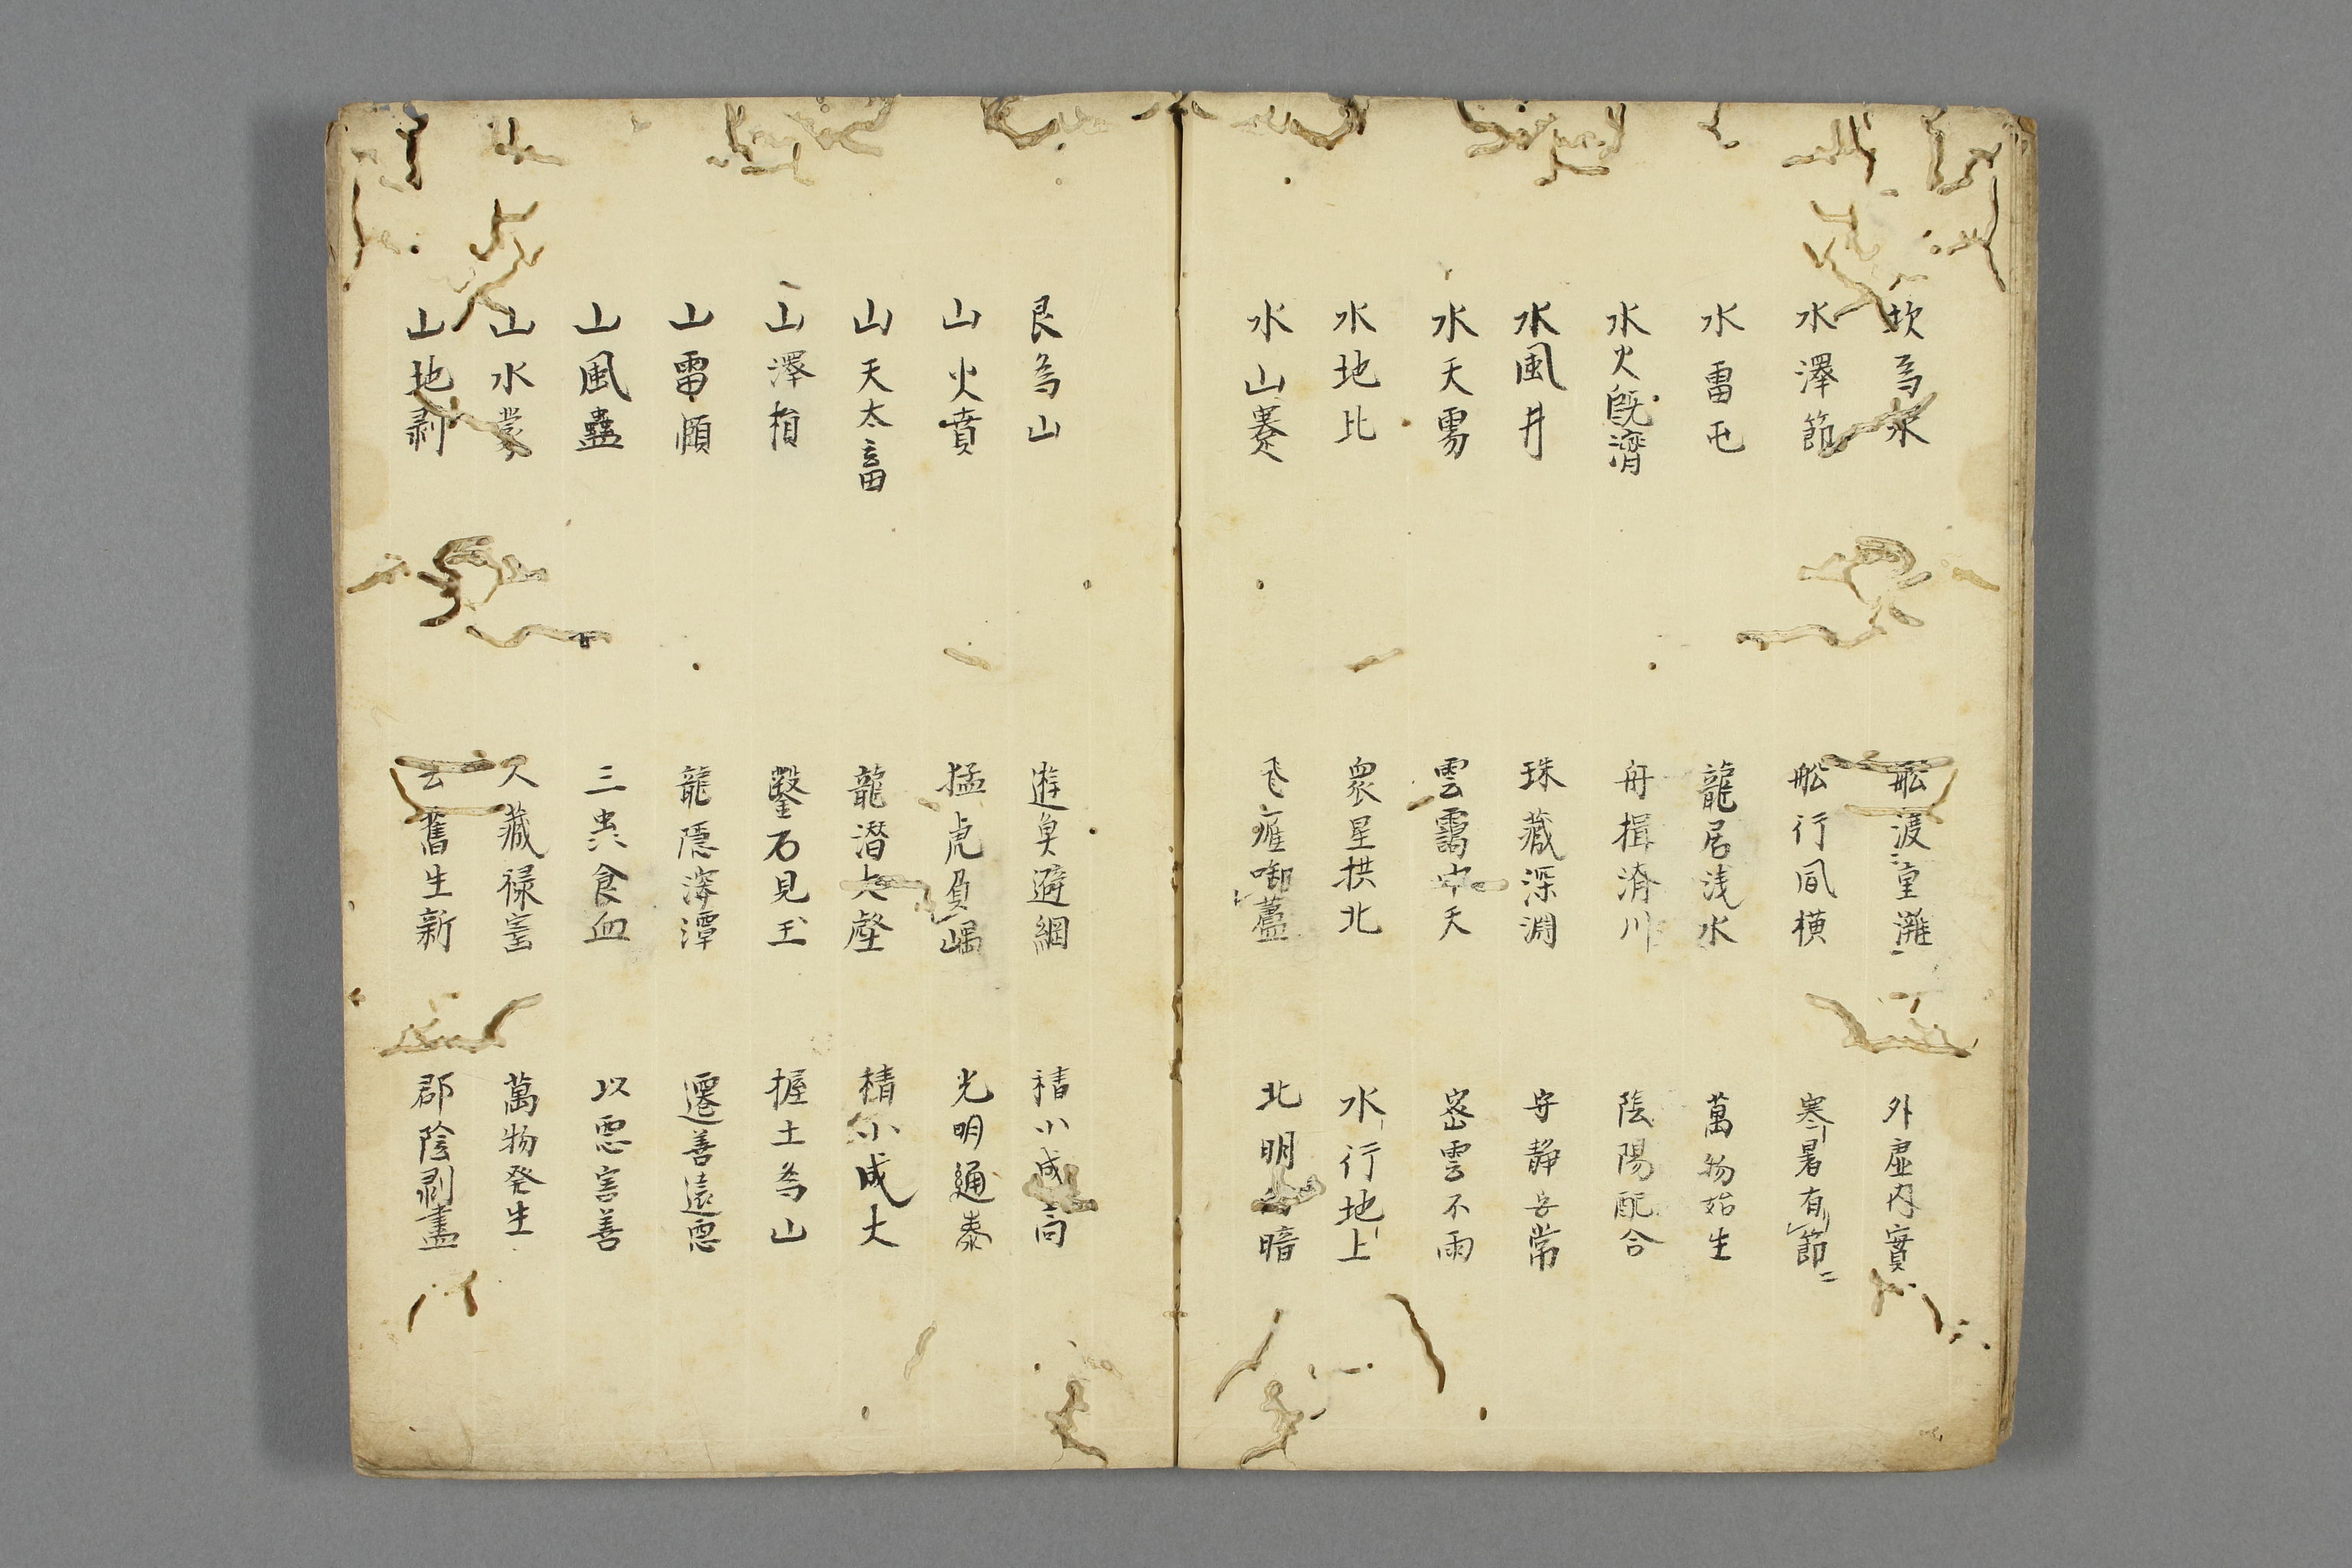 坎為水 舩渡重灘 外虚内實
水澤節 舩行風横 寒暑有節
水雷屯 龍居浅水 萬物始生
水火既濟 舟揖済川 陰陽配合
水風井 珠蔵深淵 守静安常
水天需 雲靄中天 密雲不雨
水地比 衆星拱北 水行地上
水山蹇 飛雁啣蘆 北明 暗
艮為山 遊魚避網 積小成高
山火賁 猛虎負嵎 光明通泰
山天太畜 龍潜大壑 積小成大
山澤損 鑿石見玉 握土為山
山雷頤 龍隠深潭 遷善遠悪
山風蠱 三虫食血 以悪害善
山水蒙 人藏禄宝 萬物発生
山地剥 去舊生新 郡陰剥盡